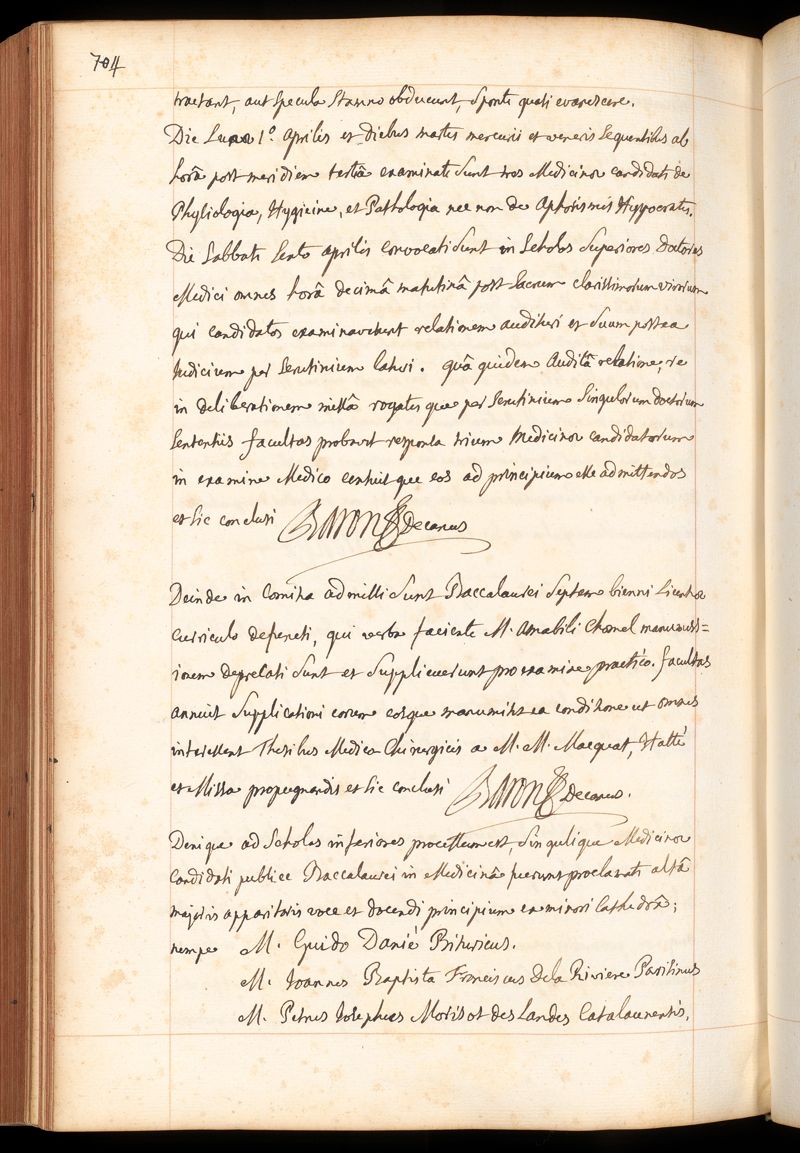 704
tractant, aut specula Stanno obducunt, sponte quasi evanescere.
Die Lunæ 1º. Aprilis et diebus martis mercurii et veneris sequentibus ab
horâ post meridiem tertiâ examinati sunt tres Medicinæ candidati de
Physiologia, Hygieine, et Pathologia nec non de Aphorismis Hyppocratis.
Die Sabbati sexto aprilis convocati sunt in Scholas Superiores Doctores
Medici omnes horâ decimâ matutinâ post Sacrum clarissimorum virorum
qui candidatos examinaverunt relationem audituri et suum postea
Judicium per Scrutinium laturi. quâ quidem Auditâ relatione, re
in deliberationem missâ rogatisque per Scrutinium Singulorum doctorum
Sententiis facultas probavit responsa trium Medicinæ candidatorum
in examine Medico censuitque eos ad principium esse admittendos
et sic conclusi Baron Decanus
Deinde in Comitia admissi sunt Baccalaurei Septem biennii Licentiæ
curriculo defuncti, qui verba faciente M. Amabili Chomel manumiss=
ionem deprecati sunt et Supplicuerunt pro examine practico. facultas
annuit Supplicationi eorum eosque manumisit ea conditione ut omnes
interessent Thesibus Medico Chirurgicis a M. M. Macquart, Hatté
et Missa propugnandis et sic conclusi Baron Decanus.
Denique ad Scholas inferiores processum est, Singulique Medicinæ
Candidati publice Baccalaurei in Medicinâ fuerunt proclamati altâ
majoris apparitoris voce et docendi principium ex minori Cathedrâ;
nempe M. Guido Danié Bituricus.
M. Joannes Baptista Franciscus de la Riviere Parisinus
M. Petrus Josephus Morisot des Landes Catalaunensis.